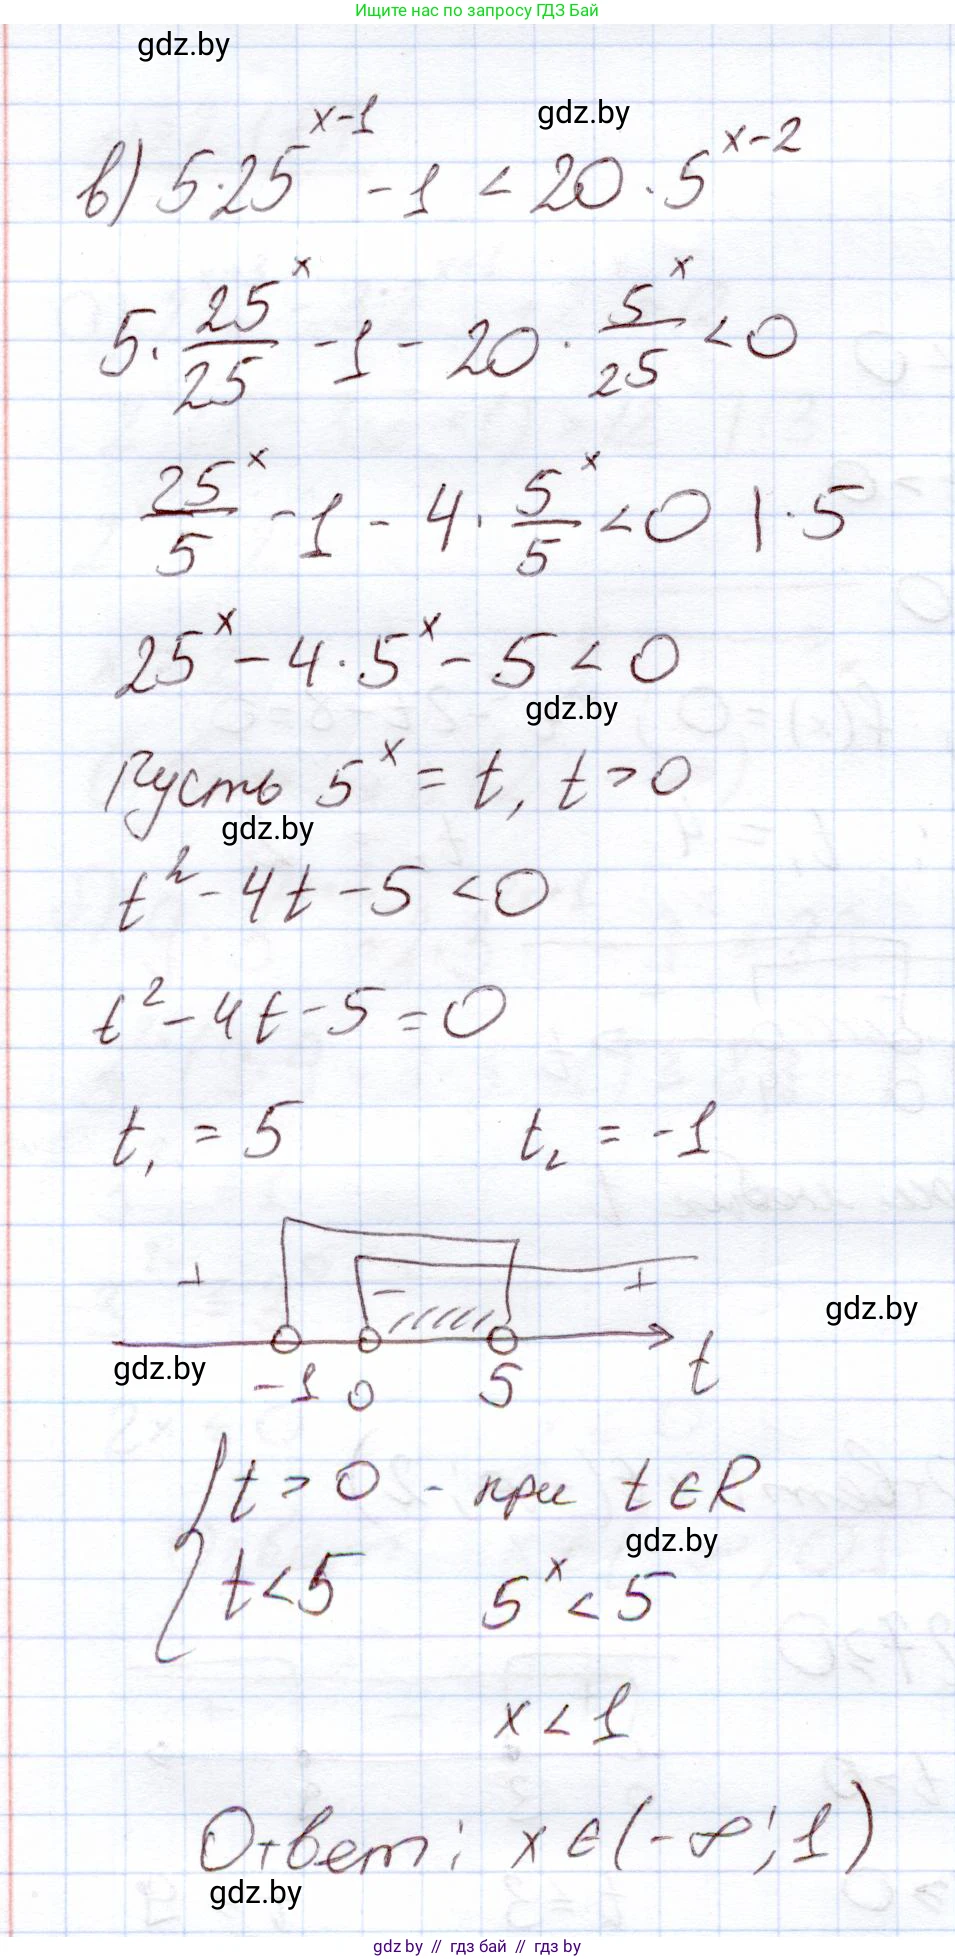 Ищите нас по запросу ГДЗ Бай
gdz.by
gdz.by
в) 5·25^(x-1) - 1 < 20·5^(x-2)
5· 25^x/25 - 1 - 20· 5^x/25 < 0
25^x/5 - 1 - 4· 5^x/5 < 0 |·5
25^x - 4·5^x - 5 < 0
gdz.by
Пусть 5^x = t, t > 0
gdz.by
t² - 4t - 5 < 0
t² - 4t - 5 = 0
t₁ = 5 t₂ = -1
+ - +
gdz.by
gdz.by
-1 0 5 t
{ t > 0 - при t ∈ R
gdz.by
t < 5 5^x < 5
x < 1
Ответ: x ∈ (-∞; 1)
gdz.by
gdz.by // гдз бай // гдз by